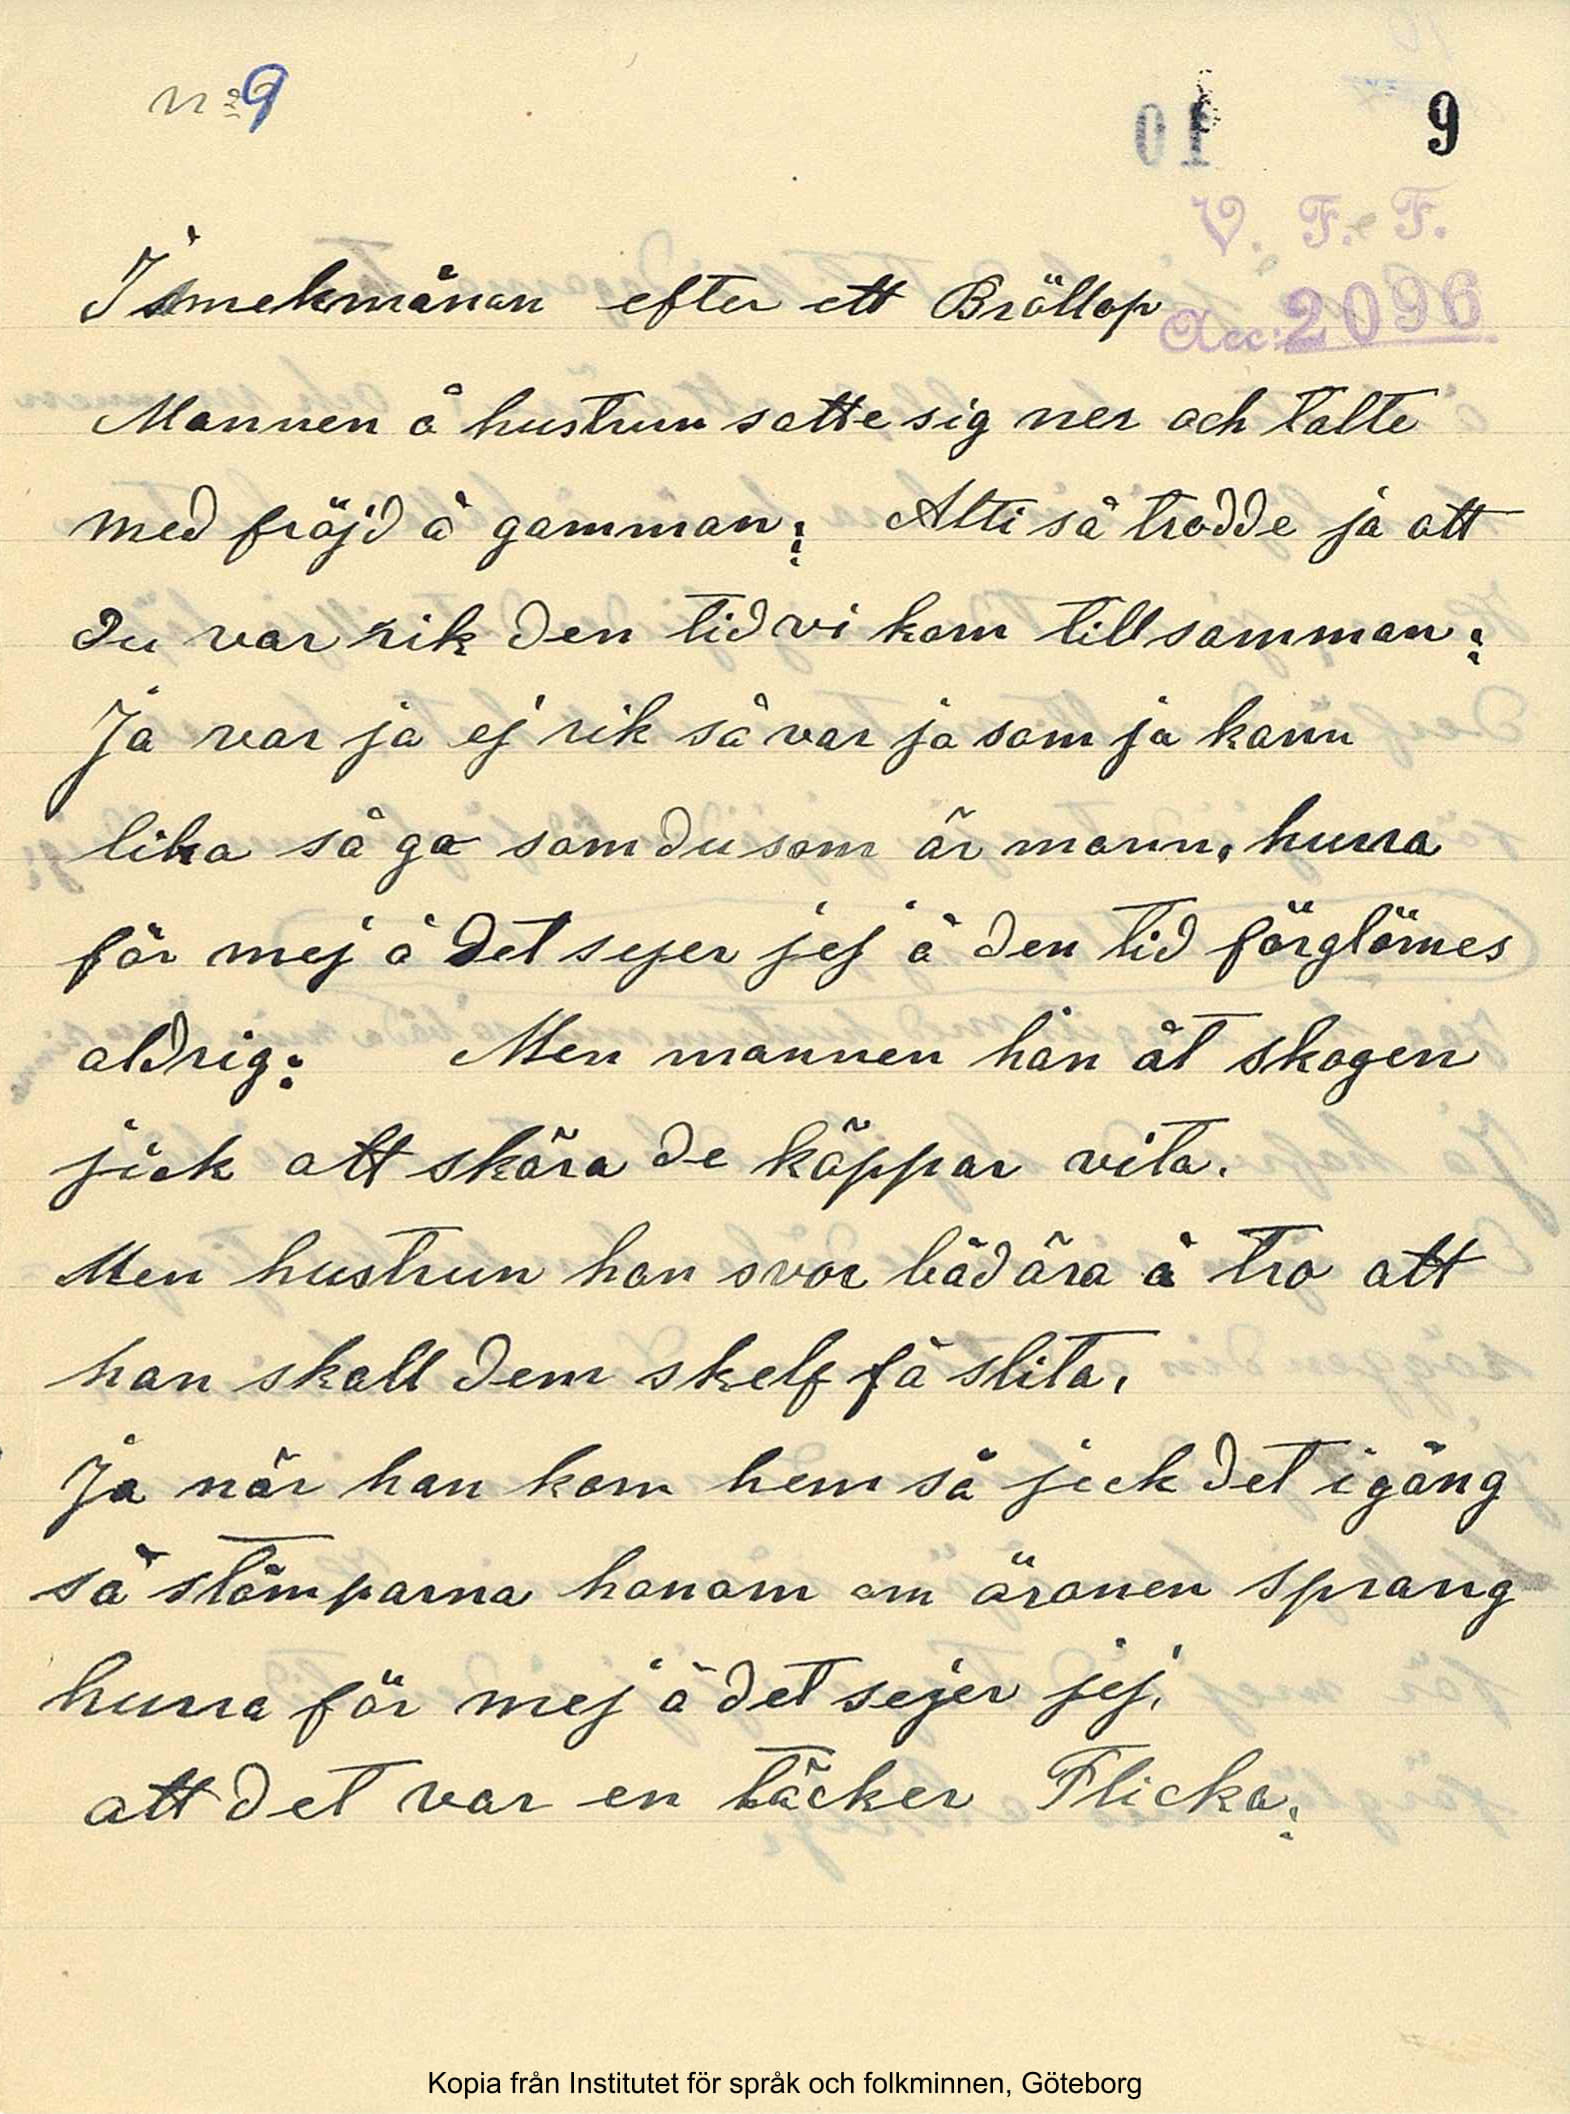 no 9
01 9
V. F. F.
I smekmånan efter ett Bröllop
Acc: 2096
Mannen å hustrun satte sig ner och talte
med fröjd å gamman: Alti så trodde ja att
du var rik den tid vi kom tillsamman:
Ja var ja ej rik så var ja som ja kann
lika så go som du som är mann, hurra
för mej å det sejer jej å den tid förglömes
aldrig: Men mannen han åt skogen
jick att skära de käppar vita.
Men hustrun hon svor båd ära å tro att
han skall dem skelf få slita,
Ja när han kom hem så jick det igång
så stömparna honom om öronen sprang
hurra för mej å det sejer jej,
att det var en täcker Flicka:
Kopia från Institutet för språk och folkminnen, Göteborg